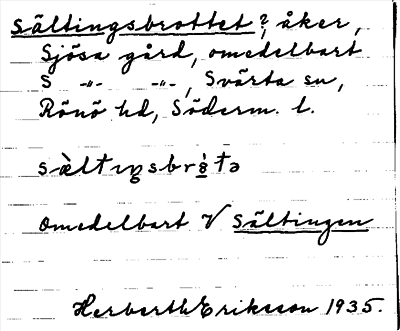 Sältingsbrottet?, åker,
Sjösa gård, omedelbart
S -"- -"-, Svärta sn,
Rönö hd, Söderm. l.
omedelbart V Sältingen
Herberth Eriksson 1935.